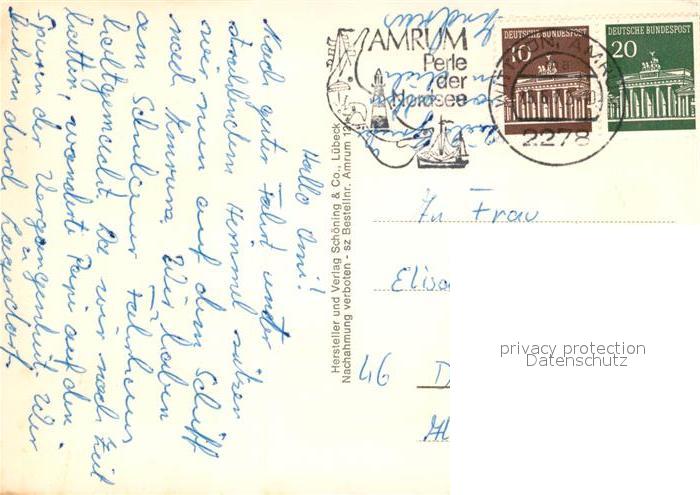 Hallo Omi!
Nach guter Fahrt unter
strahlendem Himmel sitzen
wir nun auf dem Schiff
nach Amrum. Wir haben
am Schulauer Fährhaus
haltgemacht. Da wir noch Zeit
hatten, wanderte Papi auf den
Spuren der Vergangenheit. Wir
fuhren durch
AMRUM
Perle
der
Nordsee
DEUTSCHE BUNDESPOST
10
DEUTSCHE BUNDESPOST
20
2278
Hersteller und Verlag Schöning & Co., Lübeck
Nachahmung verboten - sz Bestellnr. Amrum
An Frau
Elisa
46 D
privacy protection
Datenschutz